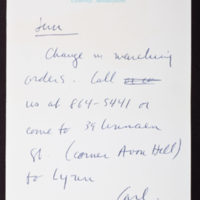 Change in marching
orders. Call
us at 864-5441 or
come to 34
St. (corner Avon Hill)
to Lynn
Carl